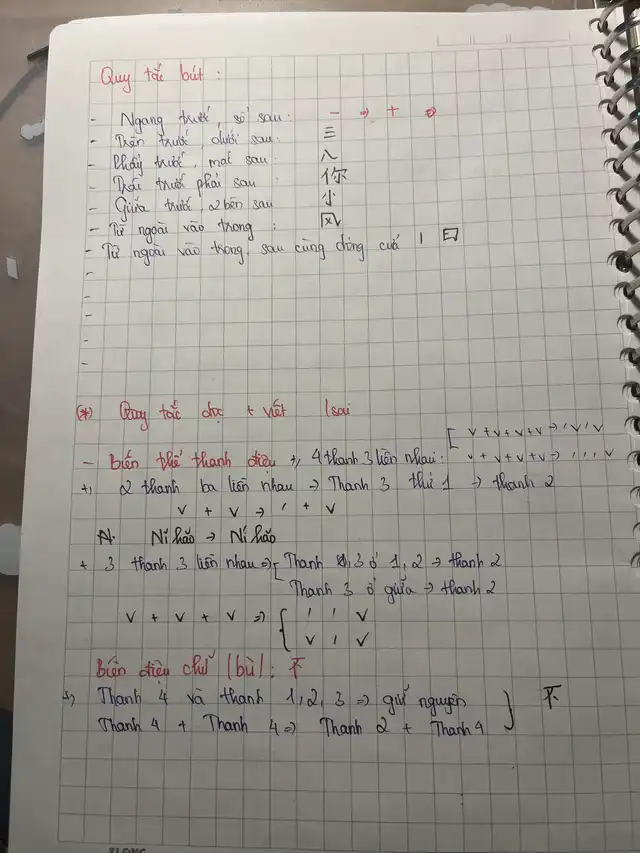 Quy tắc bút :
- Ngang trước, sổ sau : 一 => 十 =>
- Trên trước, dưới sau : 三
- Phẩy trước, mác sau : 八
- Trái trước phải sau : 你
- Giữa trước, 2 bên sau 小
- Từ ngoài vào trong : 风
- Từ ngoài vào trong, sau cùng đóng cửa 1 回
-
-
-
-
-
(*) Quy tắc đọc + viết (sai
- Biến thể thanh điệu +, 4 thanh 3 liên nhau : [ v + v + v + v => / v / v
v + v + v + v => / / / v
+, 2 thanh ba liên nhau -> Thanh 3 thứ 1 -> thanh 2
v + v -> / + v
Nǐ hǎo -> Ní hǎo
+ 3 thanh 3 liên nhau => [ Thanh 3 ở 1, 2 -> thanh 2
Thanh 3 ở giữa -> thanh 2
v + v + v => { / / v
v / v
Biến điệu chữ (bù) : 不
+, Thanh 4 và thanh 1, 2, 3 => giữ nguyên } 不
Thanh 4 + Thanh 4 => Thanh 2 + Thanh 4